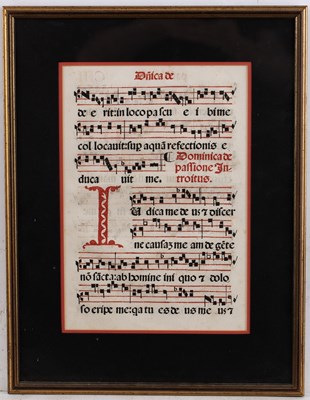 Dñica de
de erit: in loco pascu e ibi me
collocavit: sup aquā refectionis e
duca uit me. ¶ Dominica de
passione In-
troitus.
Iudica me deus ⁊ discer
ne causaʒ me am de gēte
nō sācta: ab homine ini quo ⁊ dolo
so eripe me: qa tu es de us me us ⁊